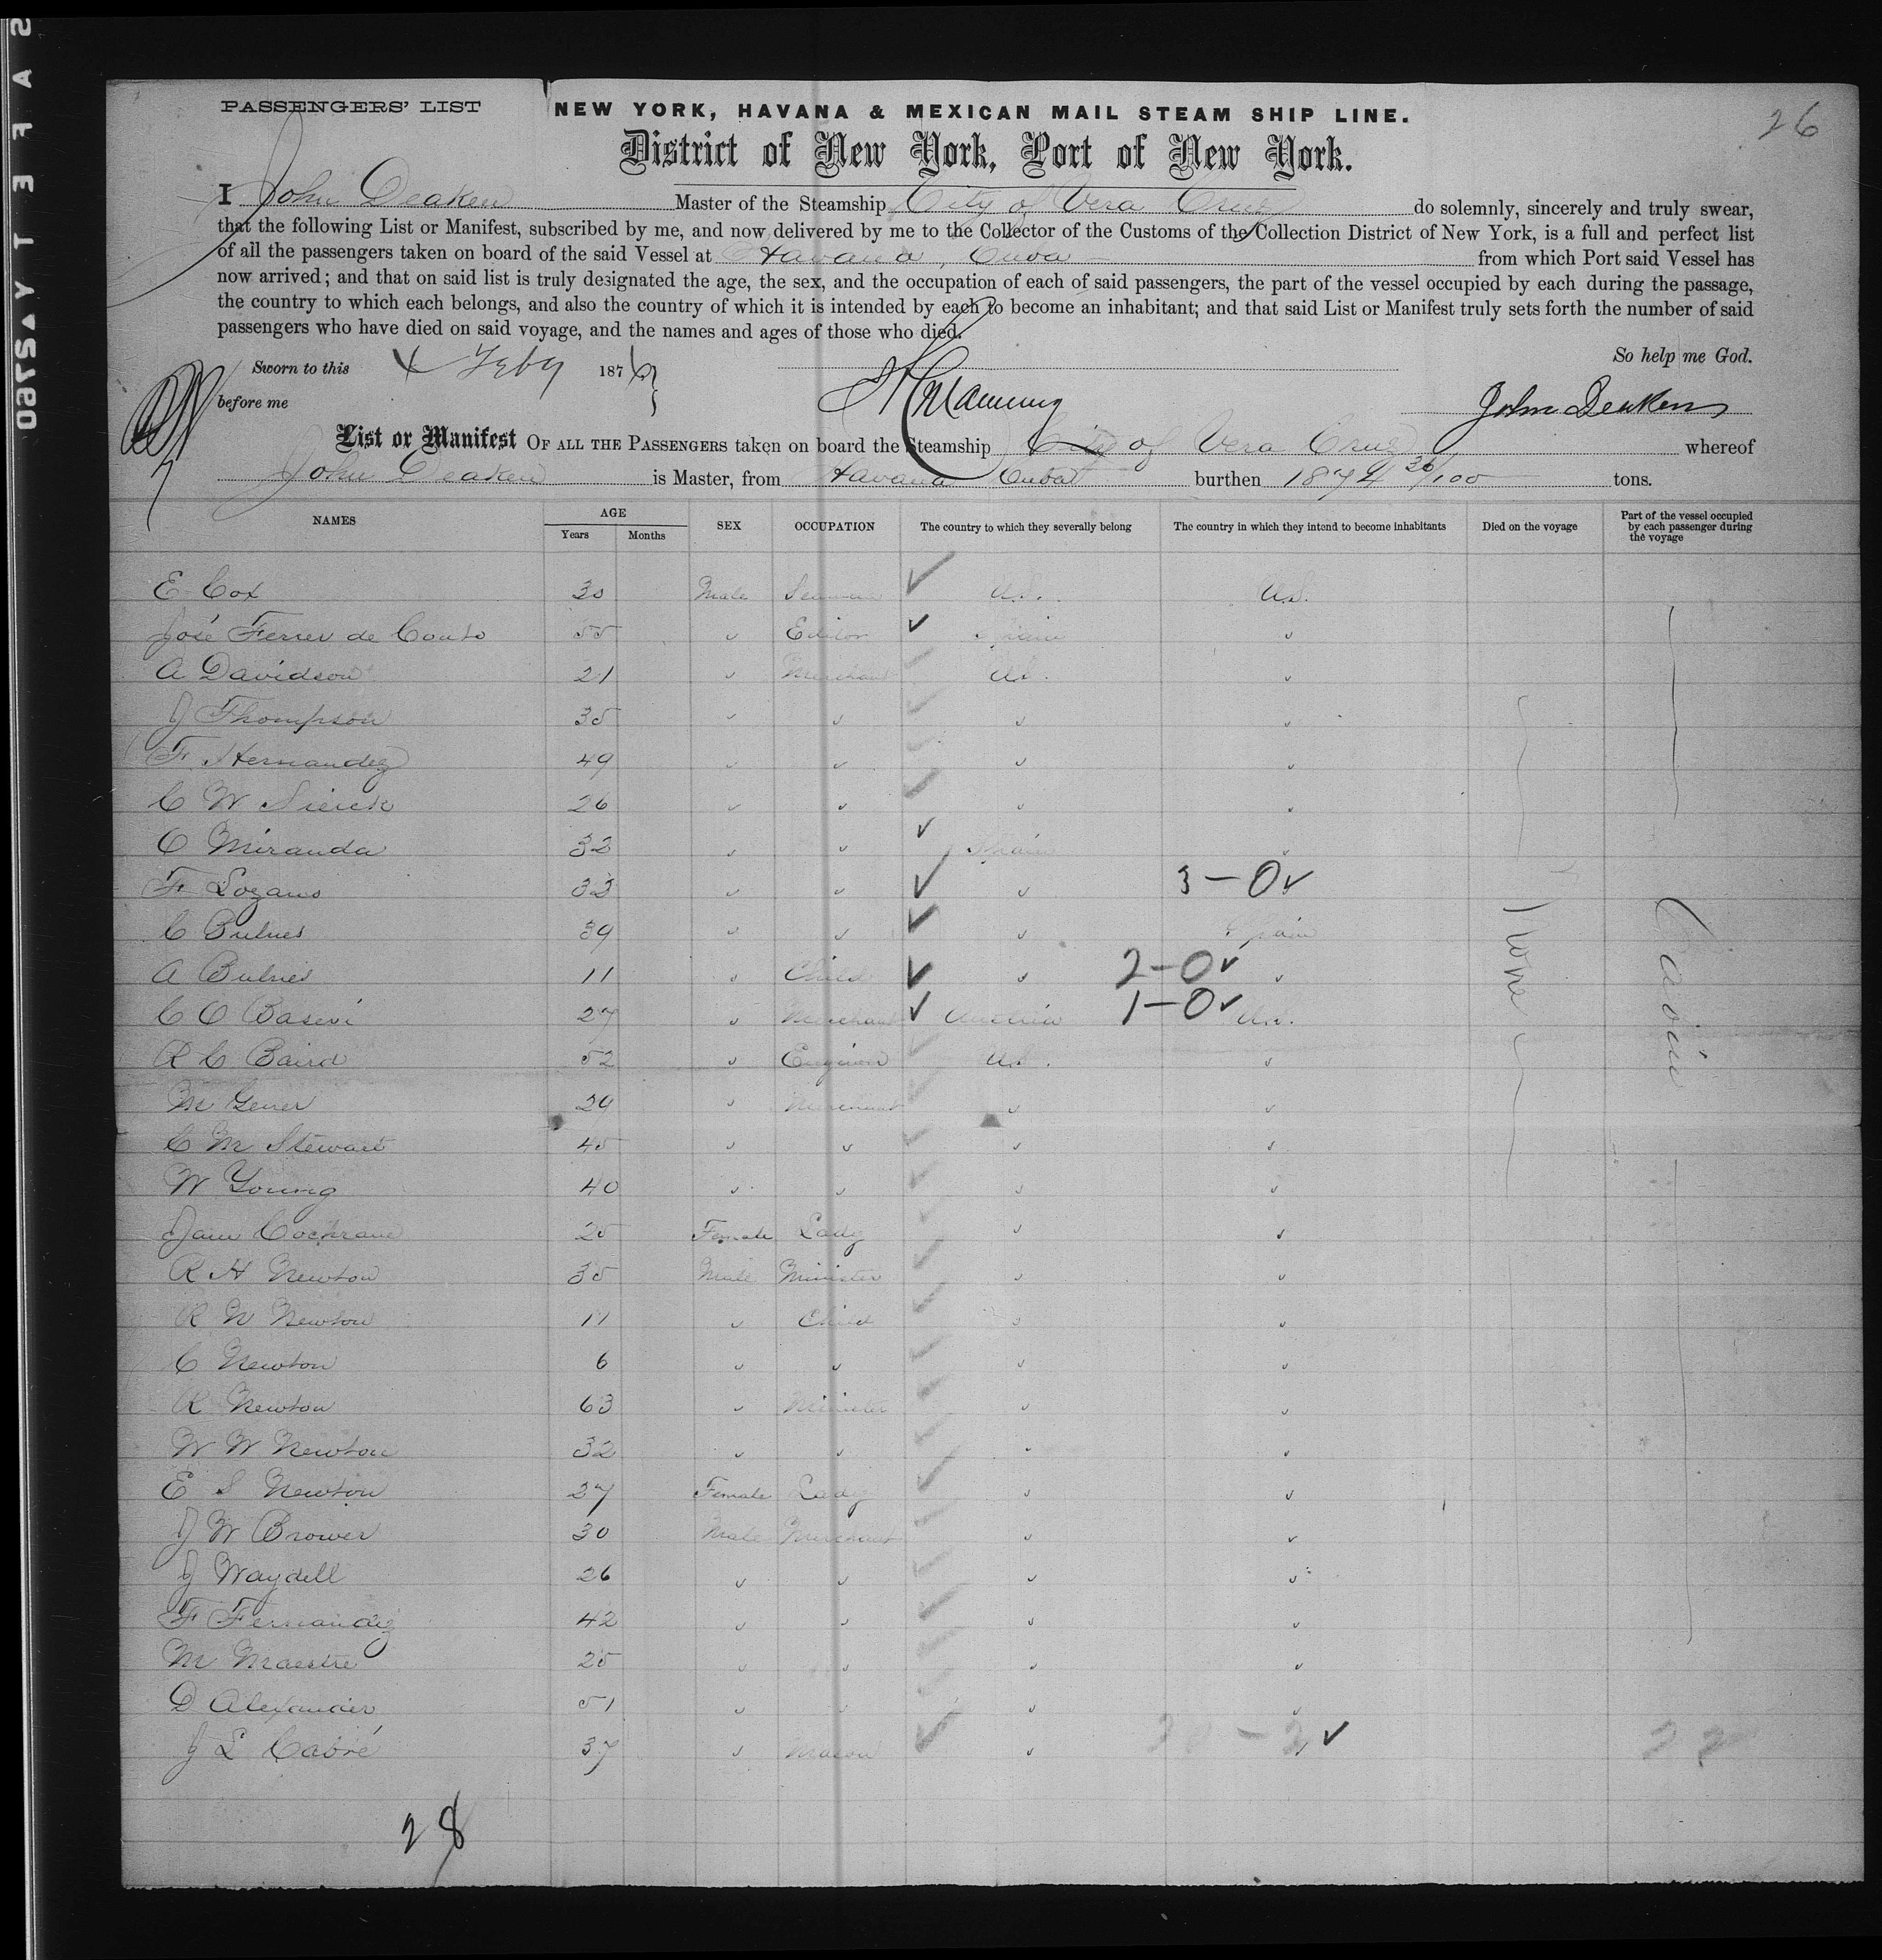 SAFETY
PASSENGERS' LIST NEW YORK, HAVANA & MEXICAN MAIL STEAM SHIP LINE. 26
District of New York, Port of New York.
I John Deaken Master of the Steamship City of Vera Cruz do solemnly, sincerely and truly swear,
that the following List or Manifest, subscribed by me, and now delivered by me to the Collector of the Customs of the Collection District of New York, is a full and perfect list
of all the passengers taken on board of the said Vessel at Havana, Cuba from which Port said Vessel has
now arrived; and that on said list is truly designated the age, the sex, and the occupation of each of said passengers, the part of the vessel occupied by each during the passage,
the country to which each belongs, and also the country of which it is intended by each to become an inhabitant; and that said List or Manifest truly sets forth the number of said
passengers who have died on said voyage, and the names and ages of those who died.
So help me God.
Sworn to this 4 Feby 1876
before me John Deaken
List or Manifest OF ALL THE PASSENGERS taken on board the Steamship City of Vera Cruz whereof
John Deaken is Master, from Havana Cuba burthen 1874 36/100 tons.
NAMES AGE Years Months SEX OCCUPATION The country to which they severally belong The country in which they intend to become inhabitants Died on the voyage Part of the vessel occupied by each passenger during the voyage
E Cox 30 Male Seaman ✓ U.S. U.S.
José Ferrer de Couto 55 " Editor ✓ Spain "
A Davidson 21 " Merchant ✓ U.S. "
J Thompson 35 " " ✓ " "
F. Hernandez 49 " " ✓ " "
C W Sierck 26 " " ✓ " "
C Miranda 32 " " ✓ Spain "
F Lozano 33 " " ✓ " 3-0 ✓
C Bulnes 39 " " ✓ " Spain
A Bulnes 11 " Child ✓ " 2-0 ✓ "
C O Basevi 27 " Merchant ✓ Austria 1-0 ✓ U.S.
R C Baird 52 " Engineer ✓ U.S. "
M Gener 29 " Merchant ✓ " "
C M Stewart 45 " " ✓ " "
W Young 40 " " ✓ " "
Jane Cochrane 25 Female Lady ✓ " "
R H Newton 35 Male Minister ✓ " "
R N Newton 11 " Child ✓ " "
C Newton 6 " " ✓ " "
R Newton 63 " Minister ✓ " "
W W Newton 32 " " ✓ " "
E S Newton 27 Female Lady ✓ " "
J W Brower 30 Male Merchant ✓ " "
J Waydell 26 " " ✓ " "
F Fernandez 42 " " ✓ " "
M Maestre 25 " " ✓ " "
D Alexander 51 " " ✓ " "
J L Cabré 37 " Mason ✓ " " ✓
None
Cabin
28